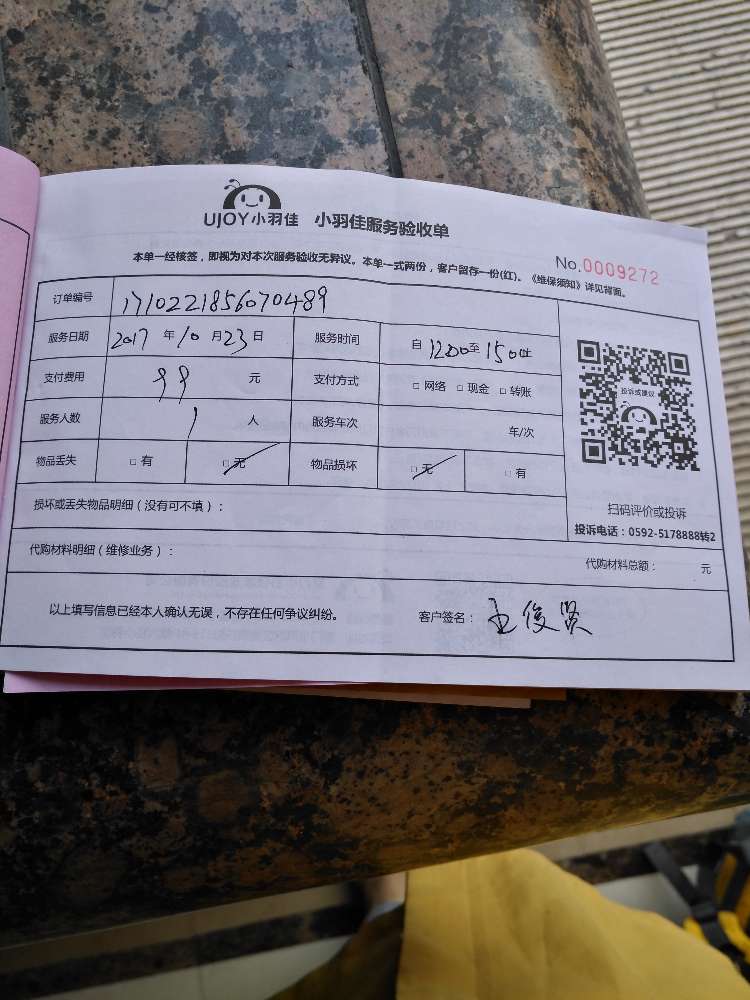 UJOY小羽佳 小羽佳服务验收单
No.0009272
本单一经核签，即视为对本次服务验收无异议。本单一式两份，客户留存一份(红)。《维保须知》详见背面。
订单编号 1710221856070489
服务日期 2017 年 10 月 23 日 服务时间 自 1200 至 1500 止
支付费用 99 元 支付方式 □ 网络 □ 现金 □ 转账
投诉或建议
服务人数 1 人 服务车次 年/次
物品丢失 □ 有 □ 无 物品损坏 □ 无 □ 有
损坏或丢失物品明细（没有可不填）：
扫码评价或投诉
投诉电话：0592-5178888转2
代购材料明细（维修业务）： 代购材料总额： 元
以上填写信息已经本人确认无误，不存在任何争议纠纷。 客户签名： 王俊贤